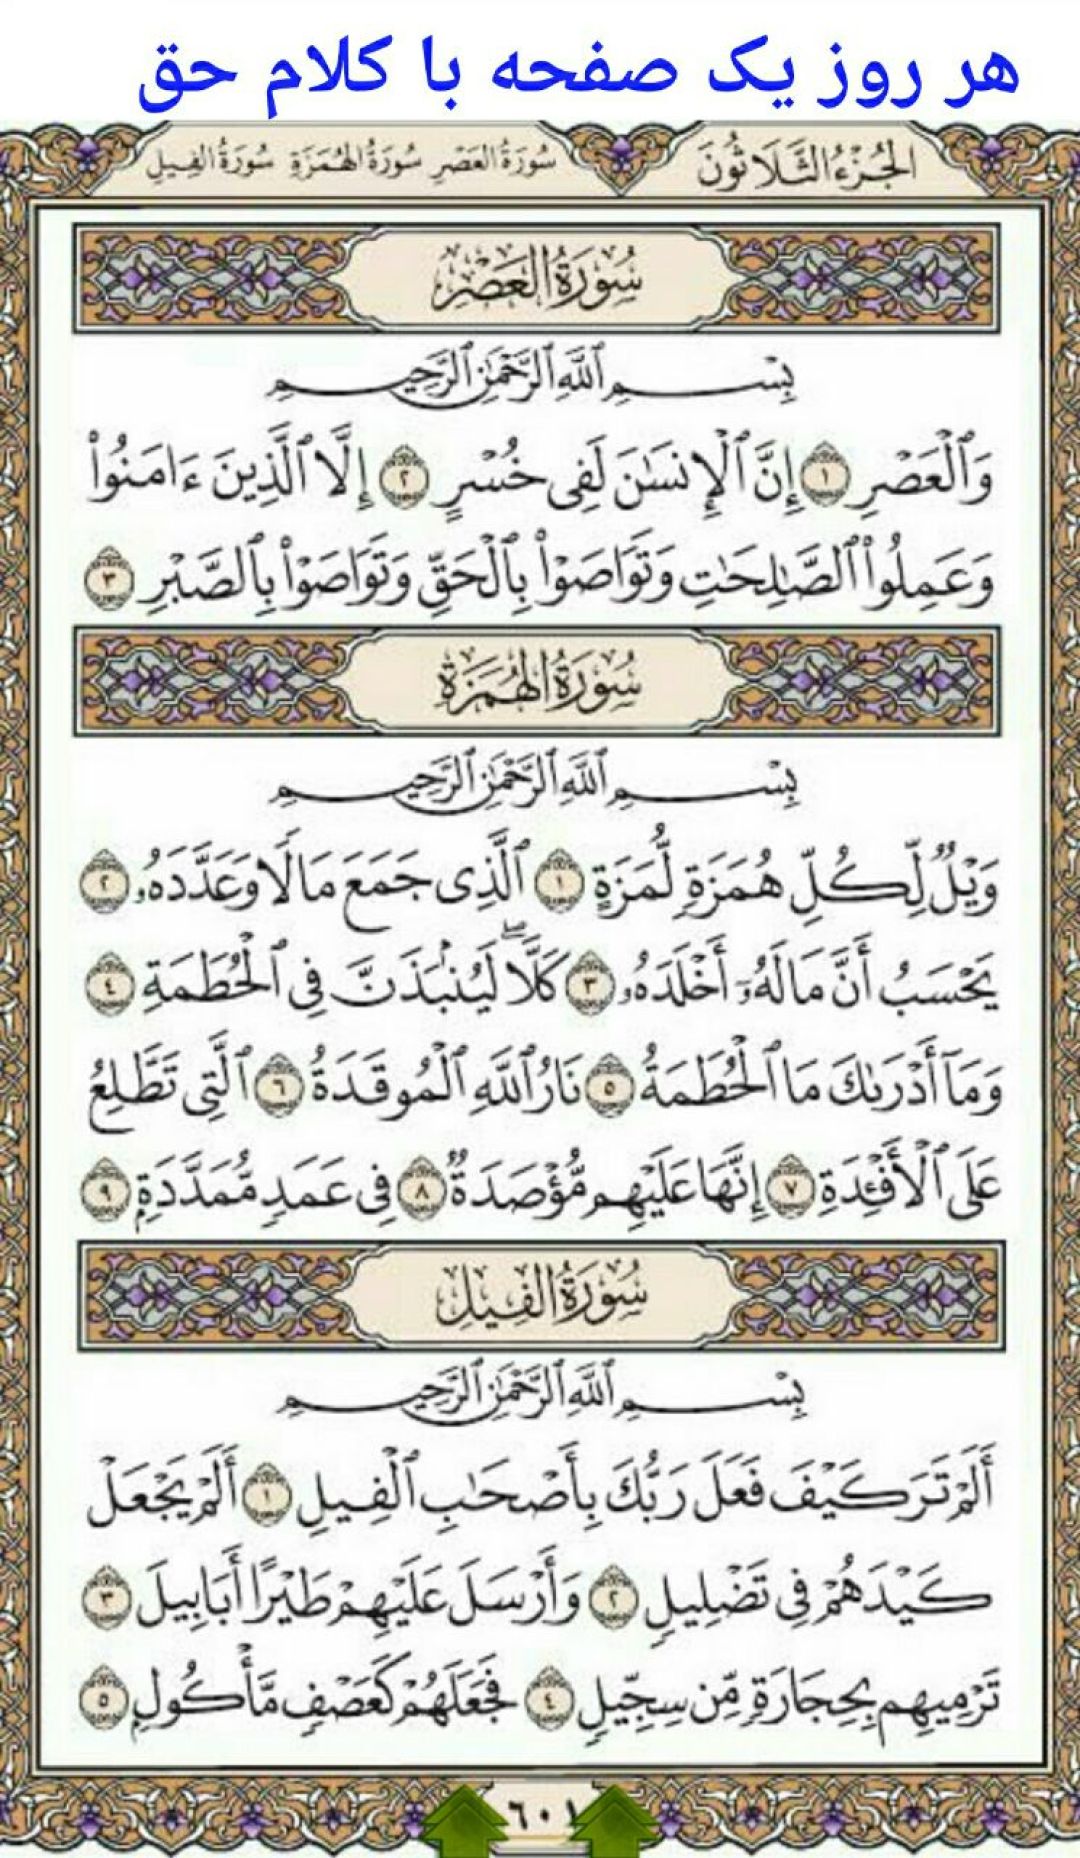 هر روز یک صفحه با کلام حق
الجُزْءُ الثَّلَاثُونَ
سُورَةُ العَصْرِ سُورَةُ الهُمَزَةِ سُورَةُ الفِيلِ
سُورَةُ العَصْرِ
بِسْمِ ٱللَّهِ ٱلرَّحْمَٰنِ ٱلرَّحِيمِ
وَٱلْعَصْرِ ١ إِنَّ ٱلْإِنسَٰنَ لَفِى خُسْرٍ ٢ إِلَّا ٱلَّذِينَ ءَامَنُوا۟
وَعَمِلُوا۟ ٱلصَّٰلِحَٰتِ وَتَوَاصَوْا۟ بِٱلْحَقِّ وَتَوَاصَوْا۟ بِٱلصَّبْرِ ٣
سُورَةُ الهُمَزَةِ
بِسْمِ ٱللَّهِ ٱلرَّحْمَٰنِ ٱلرَّحِيمِ
وَيْلٌ لِّكُلِّ هُمَزَةٍ لُّمَزَةٍ ١ ٱلَّذِى جَمَعَ مَالًا وَعَدَّدَهُۥ ٢
يَحْسَبُ أَنَّ مَالَهُۥٓ أَخْلَدَهُۥ ٣ كَلَّا ۖ لَيُنۢبَذَنَّ فِى ٱلْحُطَمَةِ ٤
وَمَآ أَدْرَىٰكَ مَا ٱلْحُطَمَةُ ٥ نَارُ ٱللَّهِ ٱلْمُوقَدَةُ ٦ ٱلَّتِى تَطَّلِعُ
عَلَى ٱلْأَفْـِٔدَةِ ٧ إِنَّهَا عَلَيْهِم مُّؤْصَدَةٌ ٨ فِى عَمَدٍ مُّمَدَّدَةٍۭ ٩
سُورَةُ الفِيلِ
بِسْمِ ٱللَّهِ ٱلرَّحْمَٰنِ ٱلرَّحِيمِ
أَلَمْ تَرَ كَيْفَ فَعَلَ رَبُّكَ بِأَصْحَٰبِ ٱلْفِيلِ ١ أَلَمْ يَجْعَلْ
كَيْدَهُمْ فِى تَضْلِيلٍ ٢ وَأَرْسَلَ عَلَيْهِمْ طَيْرًا أَبَابِيلَ ٣
تَرْمِيهِم بِحِجَارَةٍ مِّن سِجِّيلٍ ٤ فَجَعَلَهُمْ كَعَصْفٍ مَّأْكُولٍۭ ٥
٦٠١